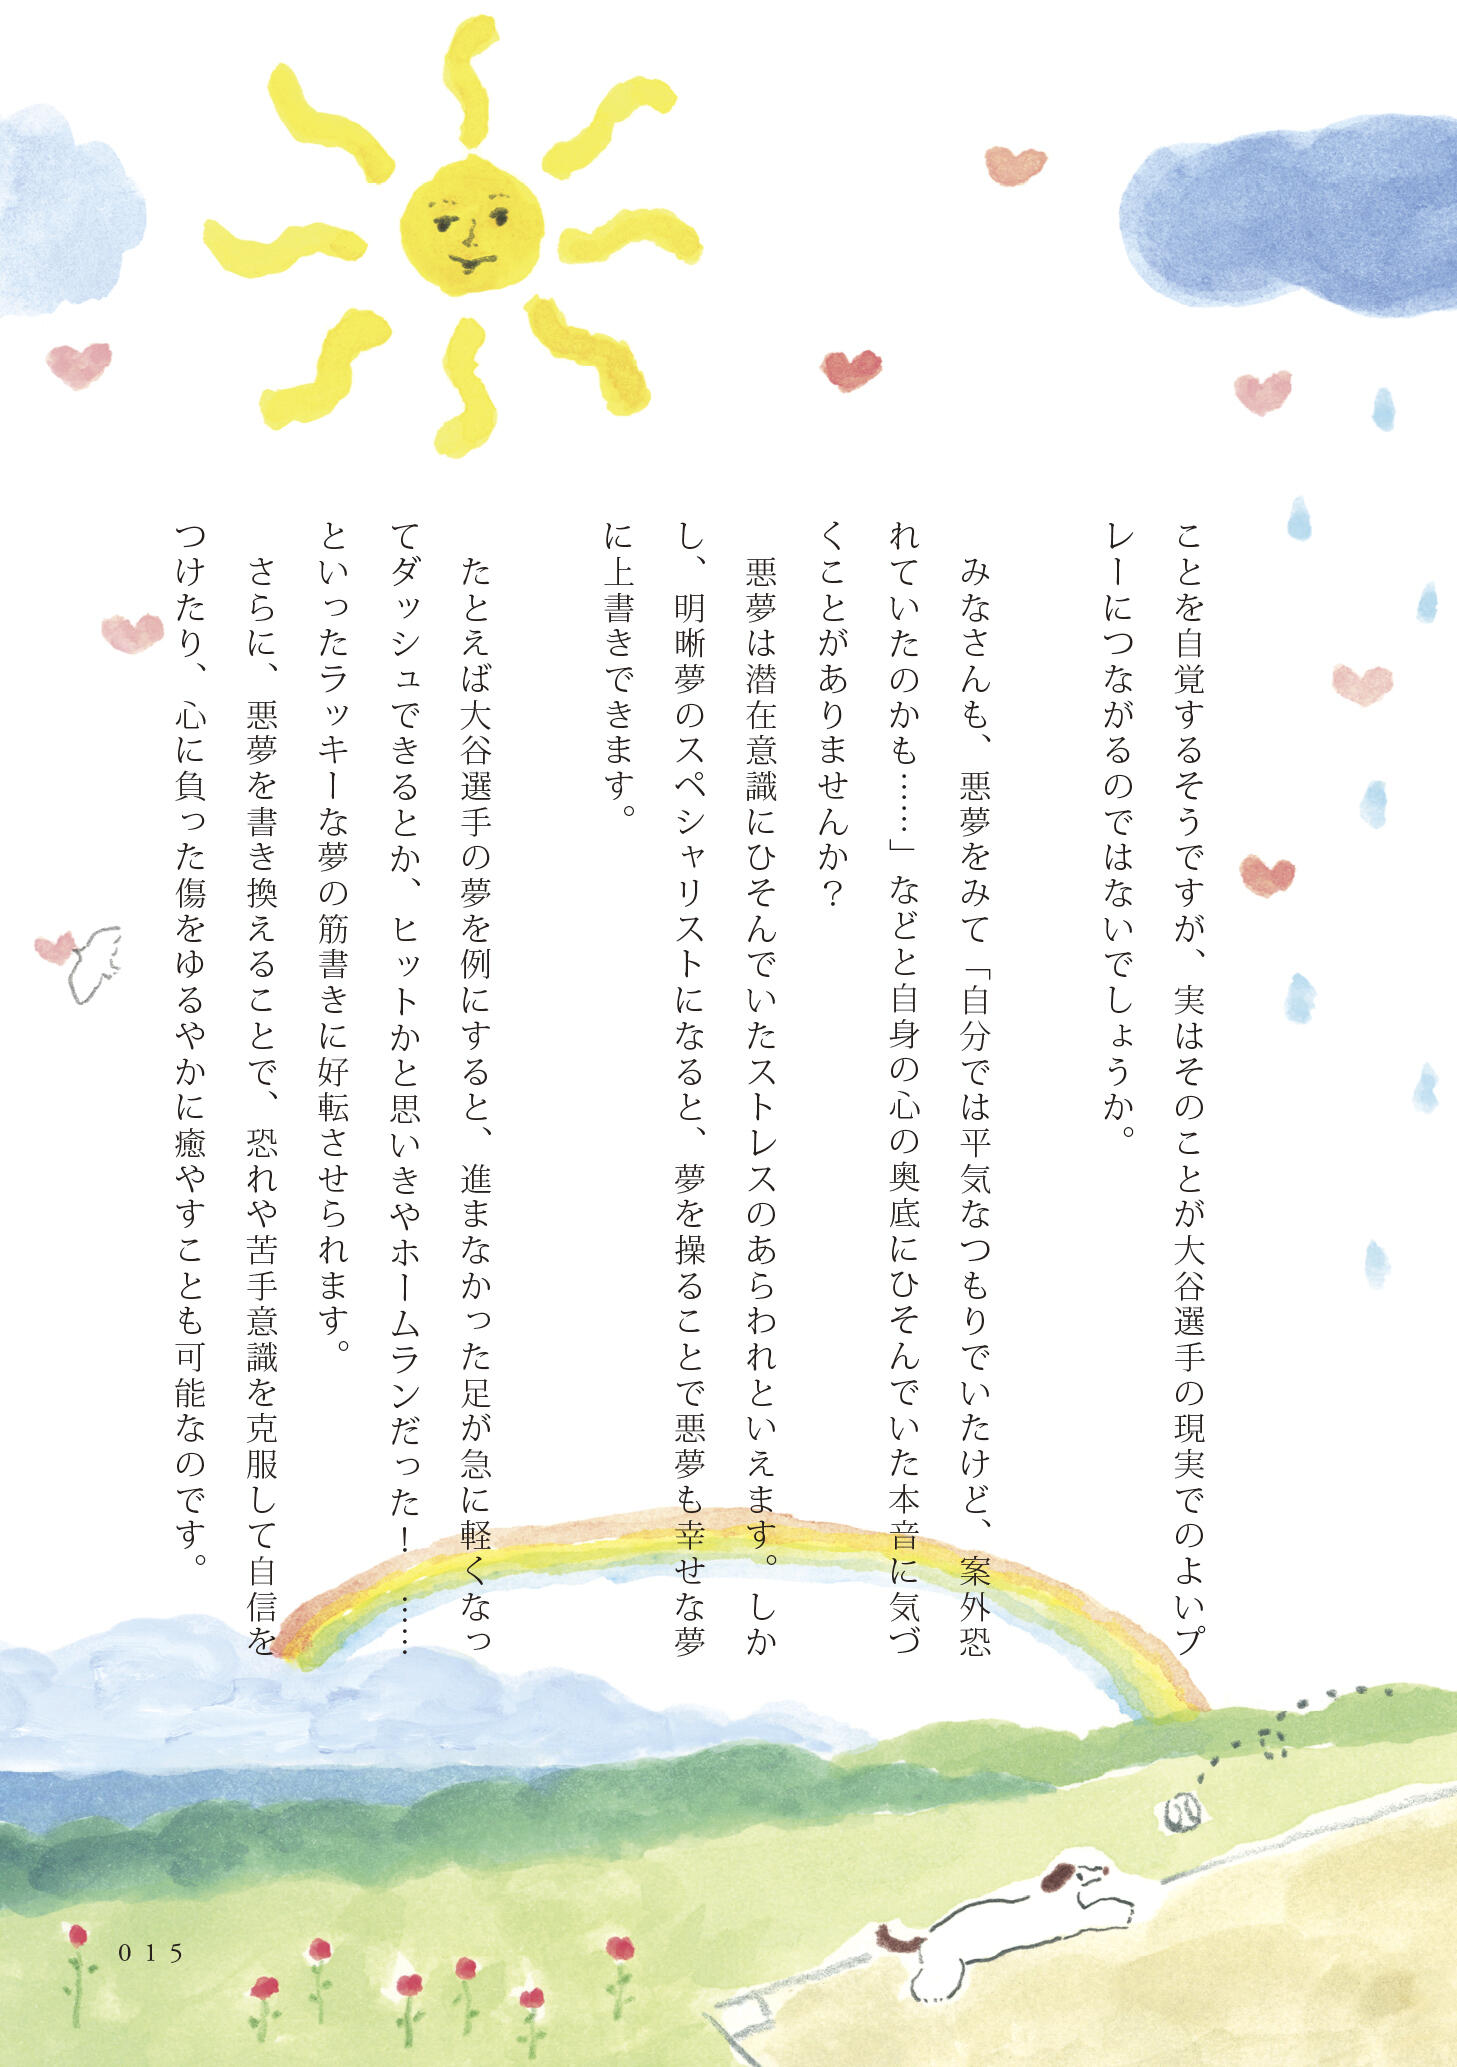 ことを自覚するそうですが、実はそのことが大谷選手の現実でのよいプ
レーにつながるのではないでしょうか。
みなさんも、悪夢をみて「自分では平気なつもりでいたけど、案外恐
れていたのかも……」などと自身の心の奥底にひそんでいた本音に気づ
くことがありませんか？
悪夢は潜在意識にひそんでいたストレスのあらわれといえます。しか
し、明晰夢のスペシャリストになると、夢を操ることで悪夢も幸せな夢
に上書きできます。
たとえば大谷選手の夢を例にすると、進まなかった足が急に軽くなっ
てダッシュできるとか、ヒットかと思いきやホームランだった！……
といったラッキーな夢の筋書きに好転させられます。
さらに、悪夢を書き換えることで、恐れや苦手意識を克服して自信を
つけたり、心に負った傷をゆるやかに癒やすことも可能なのです。
015